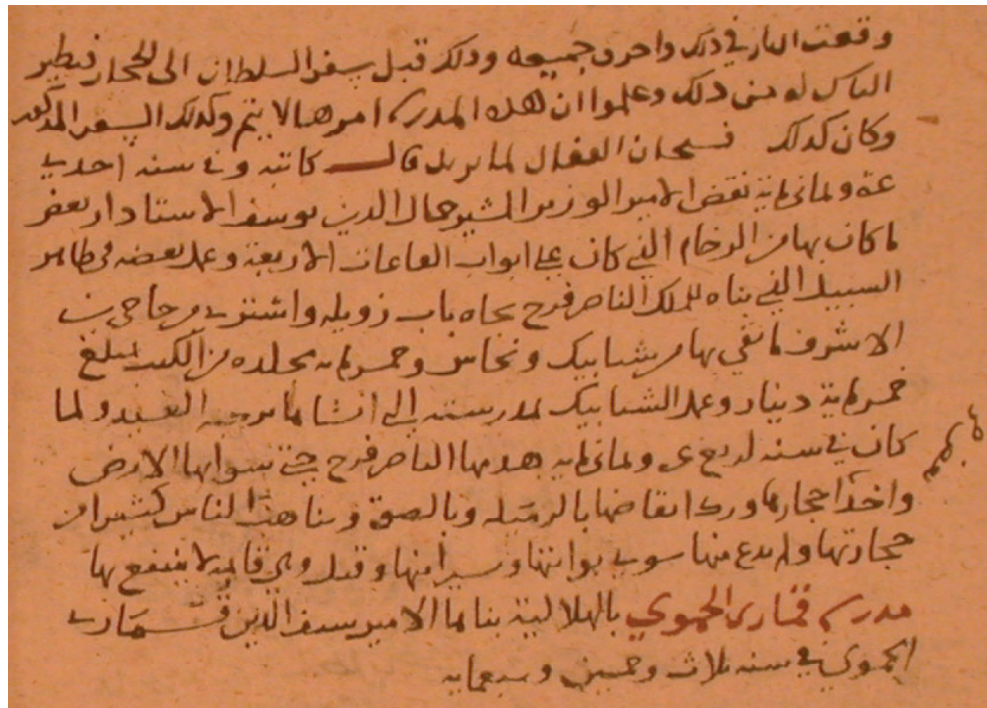 وقعت النار في ذلك واحرق جميعه وذلك قبل سفر السلطان الى الحجاز فتطير
الناس له من ذلك وعلموا ان هذه المدرسه امرها لا يتم وكذلك السفر المذكور
وكان كذلك فسبحان الفعال لما يريد قال كاتبه وفي سنه احدى
عشرة وثمانمايه نقض الامير الوزير المشير جمال الدين يوسف الاستادار بعض
ما كان بها من الرخام الذي كان على ابواب القاعات الاربعة وعمل بعضه في ظاهر
السبيل الذي بناه للملك الناصر فرج تجاه باب زويله واشترى من حاجي بن
الاشرف ما بقي بها من شبابيك ونحاس وخمسمايه مجلده من الكتب بمبلغ
خمسمايه دينار وعمل الشبابيك لمدرسته التي انشاها العيد ولما
كان في سنه اربع عشرة وثمانمايه هدمها الناصر فرج حتى سوا بها الارض
واخذ احجارها وردك انقاضها بالرميله وبالصوة وبنا هذا الناس كثيرا من
حجارتها ولم يدع منها سوى بوابتها وقيل وهي قايمه لا ينتفع بها
مدرسه قماري الحموي بالهلالية بناها الامير سيف الدين قماري
الحموي في سنه ثلاث وخمسين وسبعمايه